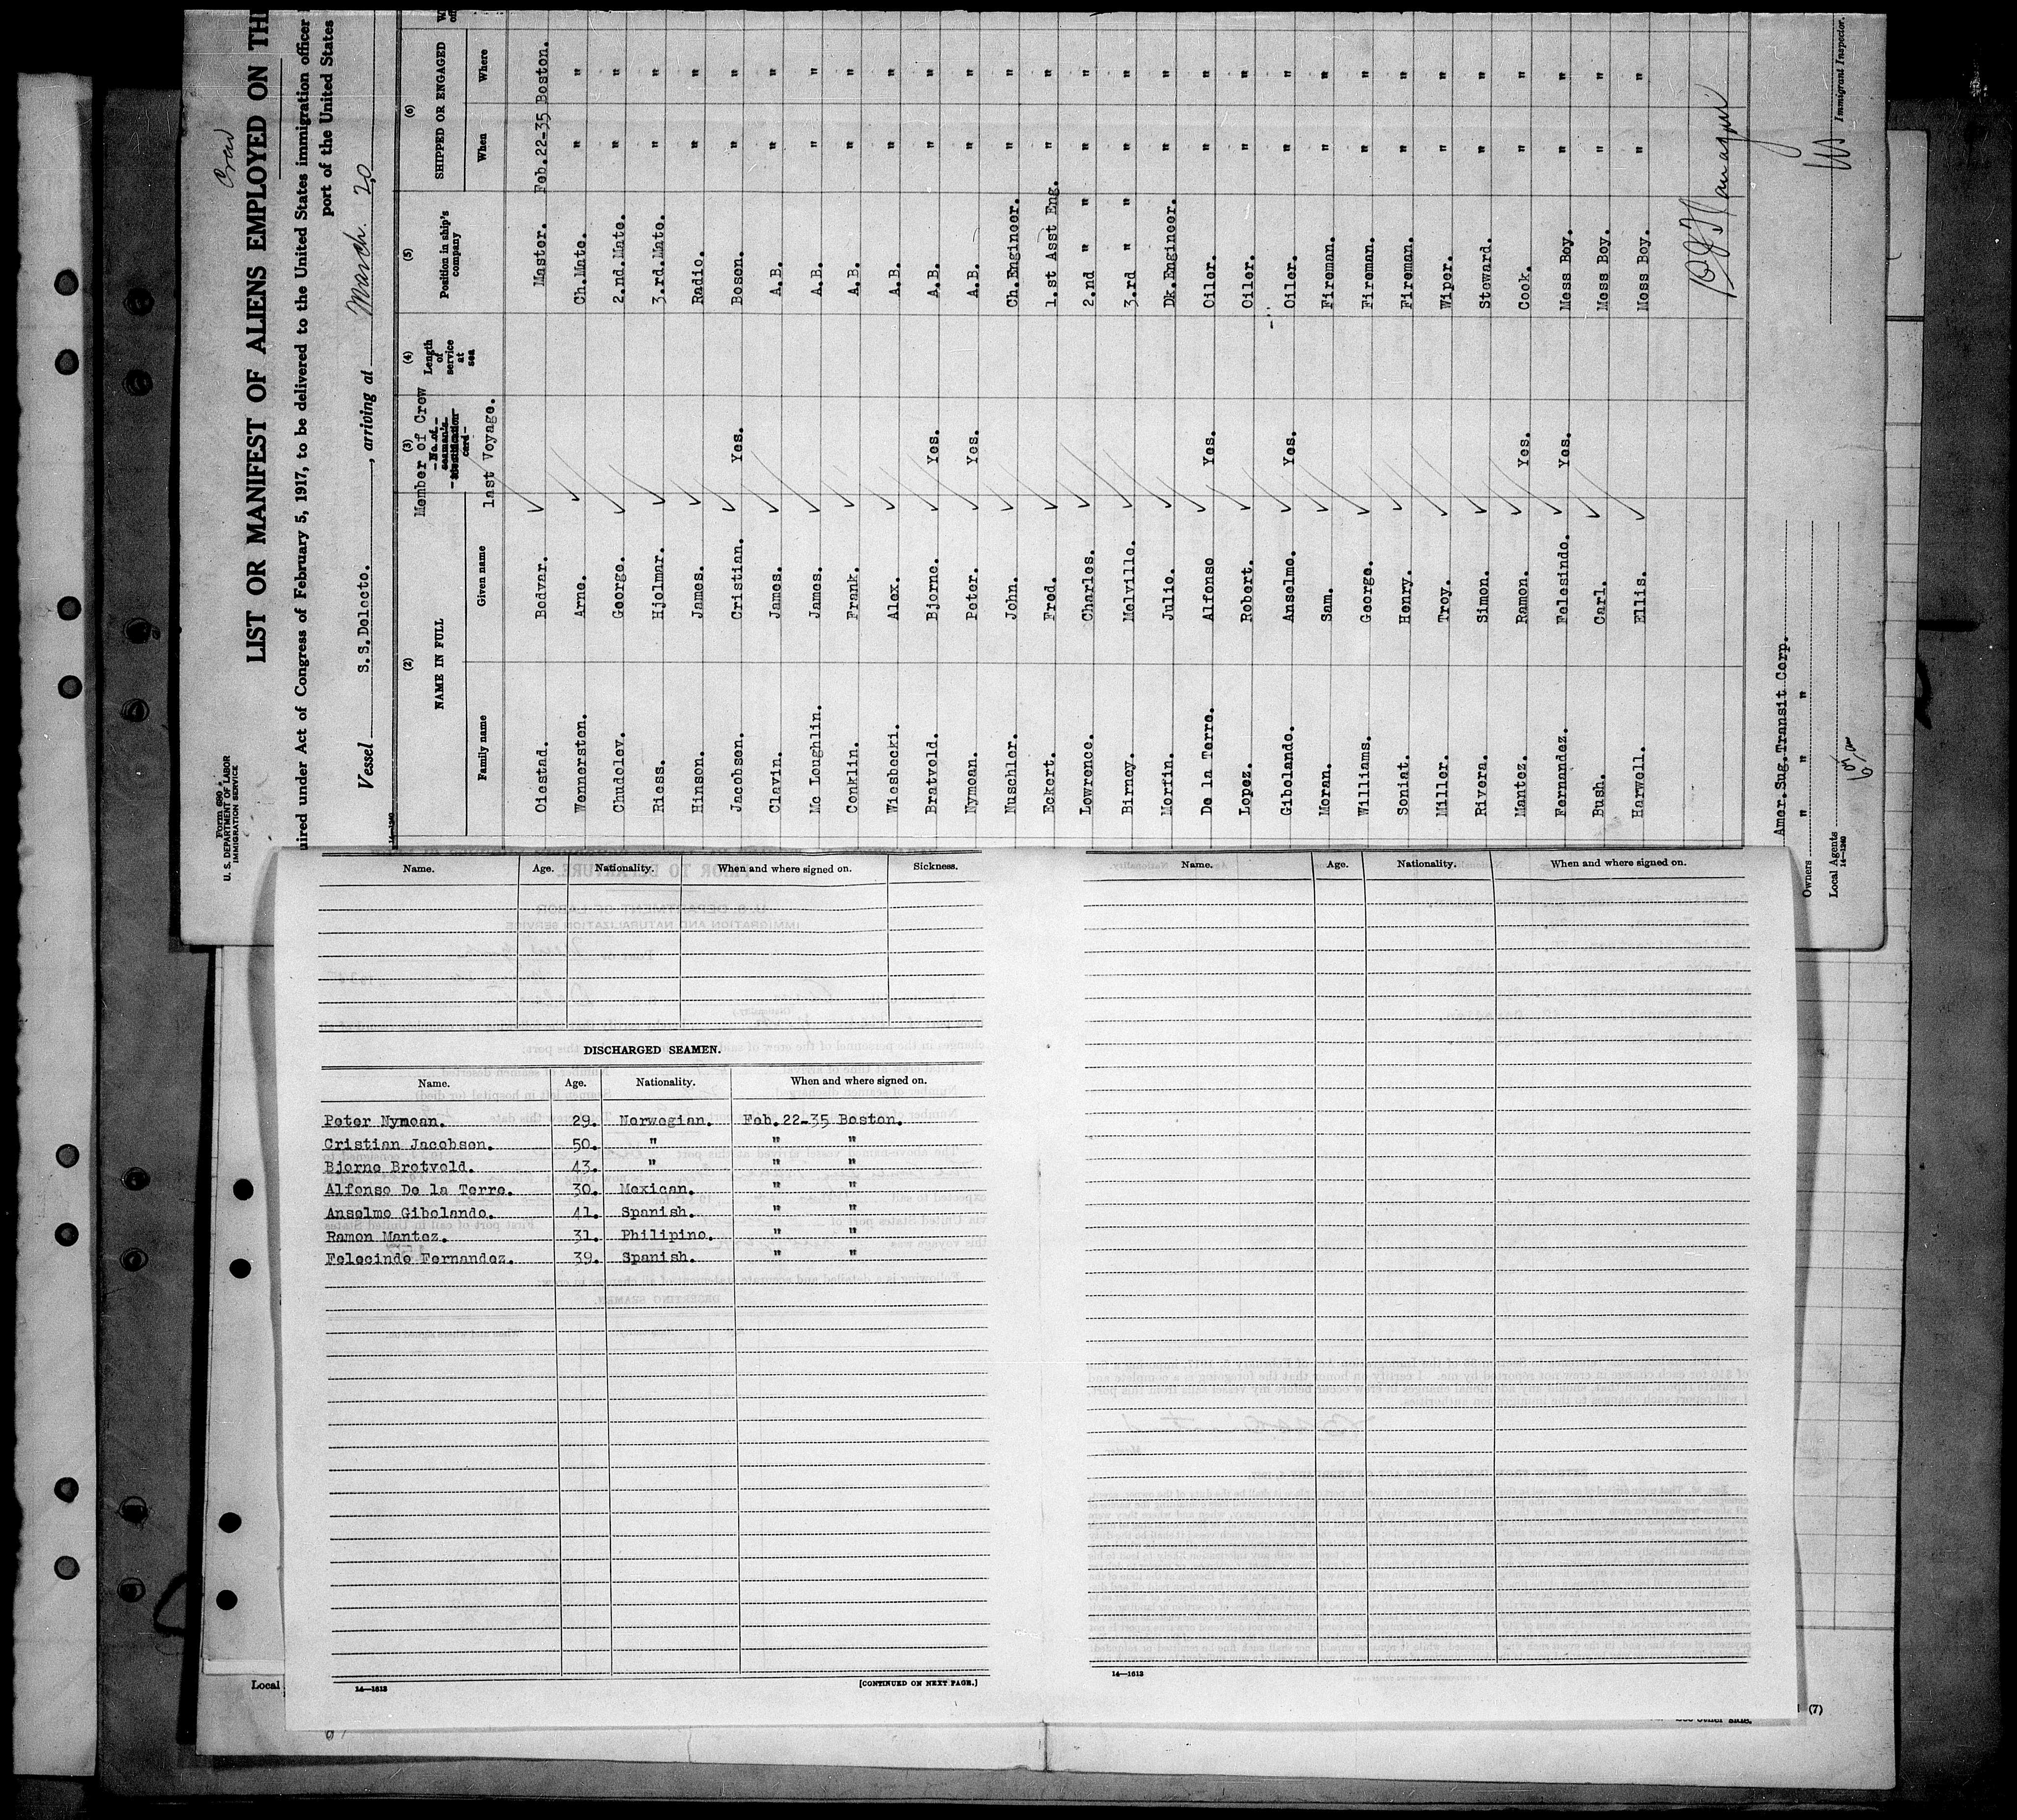 Form 680
U. S. DEPARTMENT OF LABOR
IMMIGRATION SERVICE
Crew
LIST OR MANIFEST OF ALIENS EMPLOYED ON TH
uired under Act of Congress of February 5, 1917, to be delivered to the United States immigration officer
port of the United States
Vessel S.S.Delecto. , arriving at March. 20
14—1240
(2) (3) (4) (5) (6)
NAME IN FULL Member of Crew Length of service at sea Position in ship's company SHIPPED OR ENGAGED
No. of seaman's identification card
Family name Given name last Voyage. When Where
Oiestad. Bodvar. Master. Feb.22-35 Boston.
Wennersten. Arne. Ch.Mate. " "
Chudolev. George. 2.nd.Mate. " "
Riess. Hjolmar. 3.rd.Mate. " "
Hinson. James. Radio. " "
Jacobsen. Cristian. Yes. Boson. " "
Clavin. James. A.B. " "
Mc Loughlin. James. A.B. " "
Conklin. Frank. A.B. " "
Wiesbecki. Alex. A.B. " "
Bratvold. Bjorne. Yes. A.B. " "
Nymoan. Peter. Yes. A.B. " "
Nuschler. John. Ch.Engineer. " "
Eckert. Fred. 1.st Asst Eng. " "
Lowrence. Charles. 2.nd " " " "
Birney. Melville. 3.rd " " " "
Morrin. Julio. Dk.Engineer. " "
De la Terre. Alfonso Yes. Oiler. " "
Lopez. Robert. Oiler. " "
Gibolando. Anselmo. Yes. Oiler. " "
Moran. Sam. Fireman. " "
Williams. George. Fireman. " "
Soniat. Henry. Fireman. " "
Miller. Troy. Wiper. " "
Rivera. Simon. Steward. " "
Mantez. Ramon. Yes. Cook. " "
Fernandez. Felesindo. Yes. Mess Boy. " "
Bush. Carl. Mess Boy. " "
Harwell. Ellis. Mess Boy. " "
Amer.Sug.Transit Corp.
Owners " " "
Local Agents
14—1240
Immigrant Inspector.
Name. Age. Nationality. When and where signed on. Sickness.
DISCHARGED SEAMEN.
Name. Age. Nationality. When and where signed on.
Peter Nymoan. 29. Norwegian. Feb.22-35 Boston.
Cristian Jacobsen. 50. " " "
Bjorne Bretvold. 43. " " "
Alfonso De la Terre. 30. Mexican. " "
Anselmo Gibolando. 41. Spanish. " "
Ramon Mantez. 31. Philipino. " "
Felecindo Fernandez. 39. Spanish. " "
14—1613 [CONTINUED ON NEXT PAGE.]
Name. Age. Nationality. When and where signed on.
14—1613
Local
(7)
See other side.